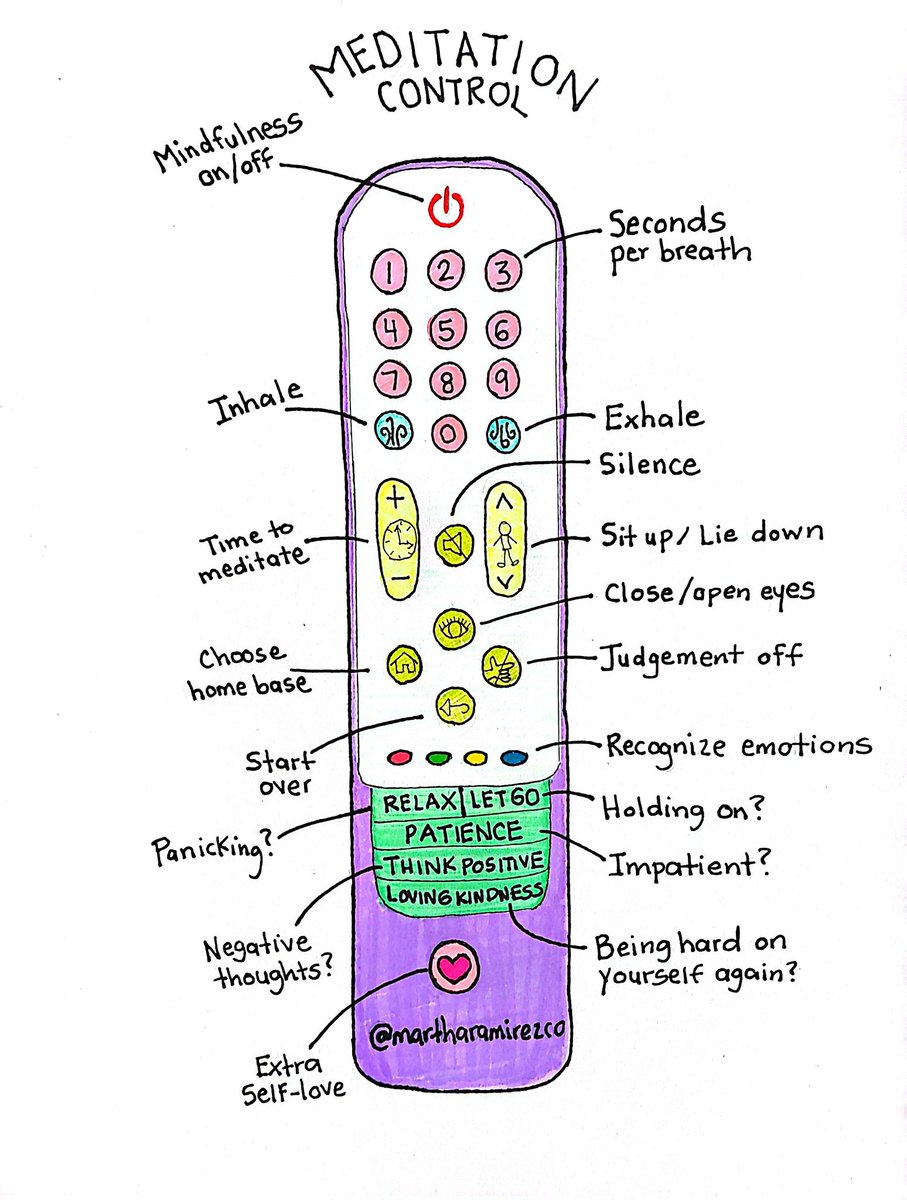 MEDITATION
CONTROL
Mindfulness
on/off
Seconds
per breath
1 2 3
4 5 6
7 8 9
Inhale
0
Exhale
Silence
+
Time to
meditate
−
Sit up/ Lie down
Close/open eyes
Choose
home base
Judgement off
Start
over
Recognize emotions
RELAX LET GO
Holding on?
Panicking?
PATIENCE
Impatient?
THINK POSITIVE
LOVING KINDNESS
Negative
thoughts?
Being hard on
yourself again?
@martharamirezco
Extra
Self-love